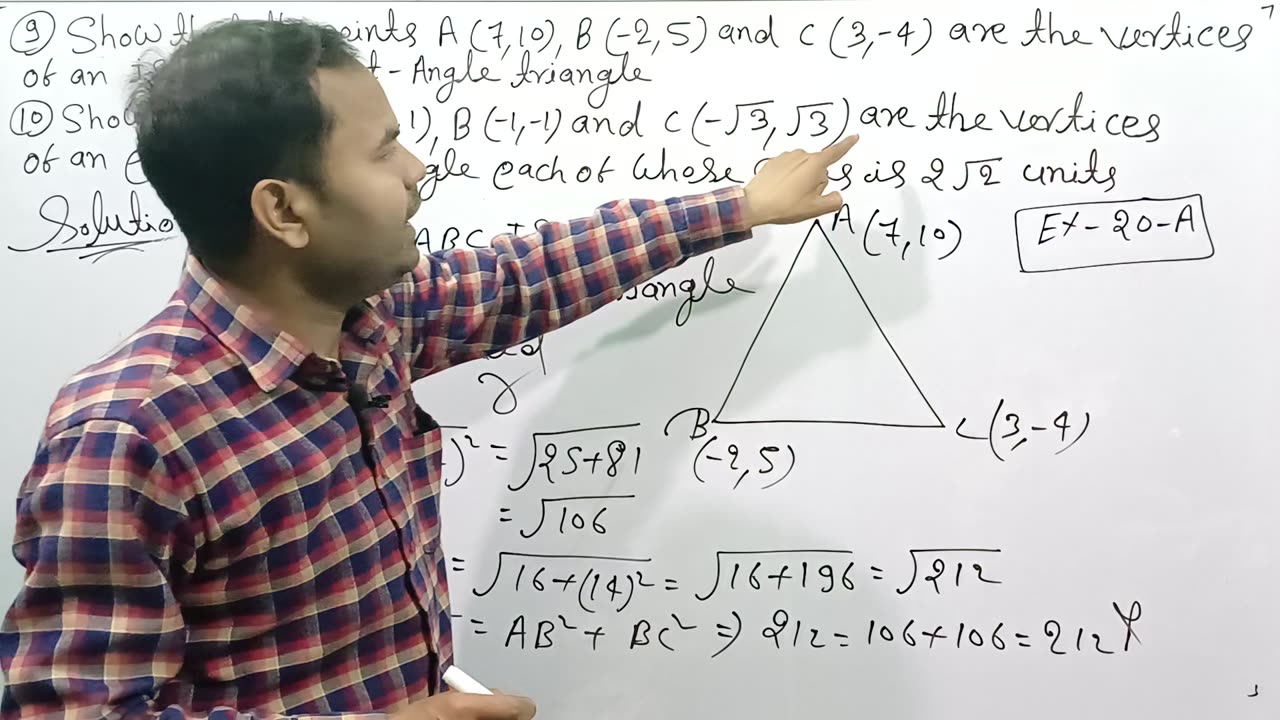 ⑨ Show th ints A(7,10), B(-2,5) and C(3,-4) are the vertices
of an t-Angle triangle
⑩ Sho 1), B(-1,-1) and C(-√3,√3) are the vertices
of an gle each of whose s is 2√2 units
Solutio
ABC
A(7,10)
Ex-20-A
angle
B
(-2,5)
C(3,-4)
)² = √25+81
= √106
= √16+(14)² = √16+196 = √212
= AB² + BC² ⇒ 212 = 106+106 = 212